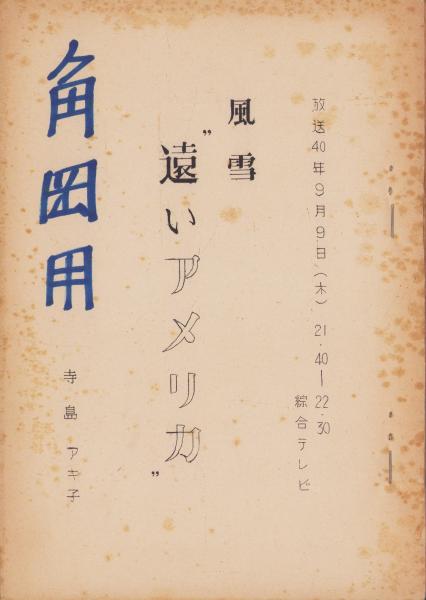 放送40年9月9日(木) 21.40—22.30
綜合テレビ
風雪
"遠いアメリカ"
寺島 アキ子
角田用